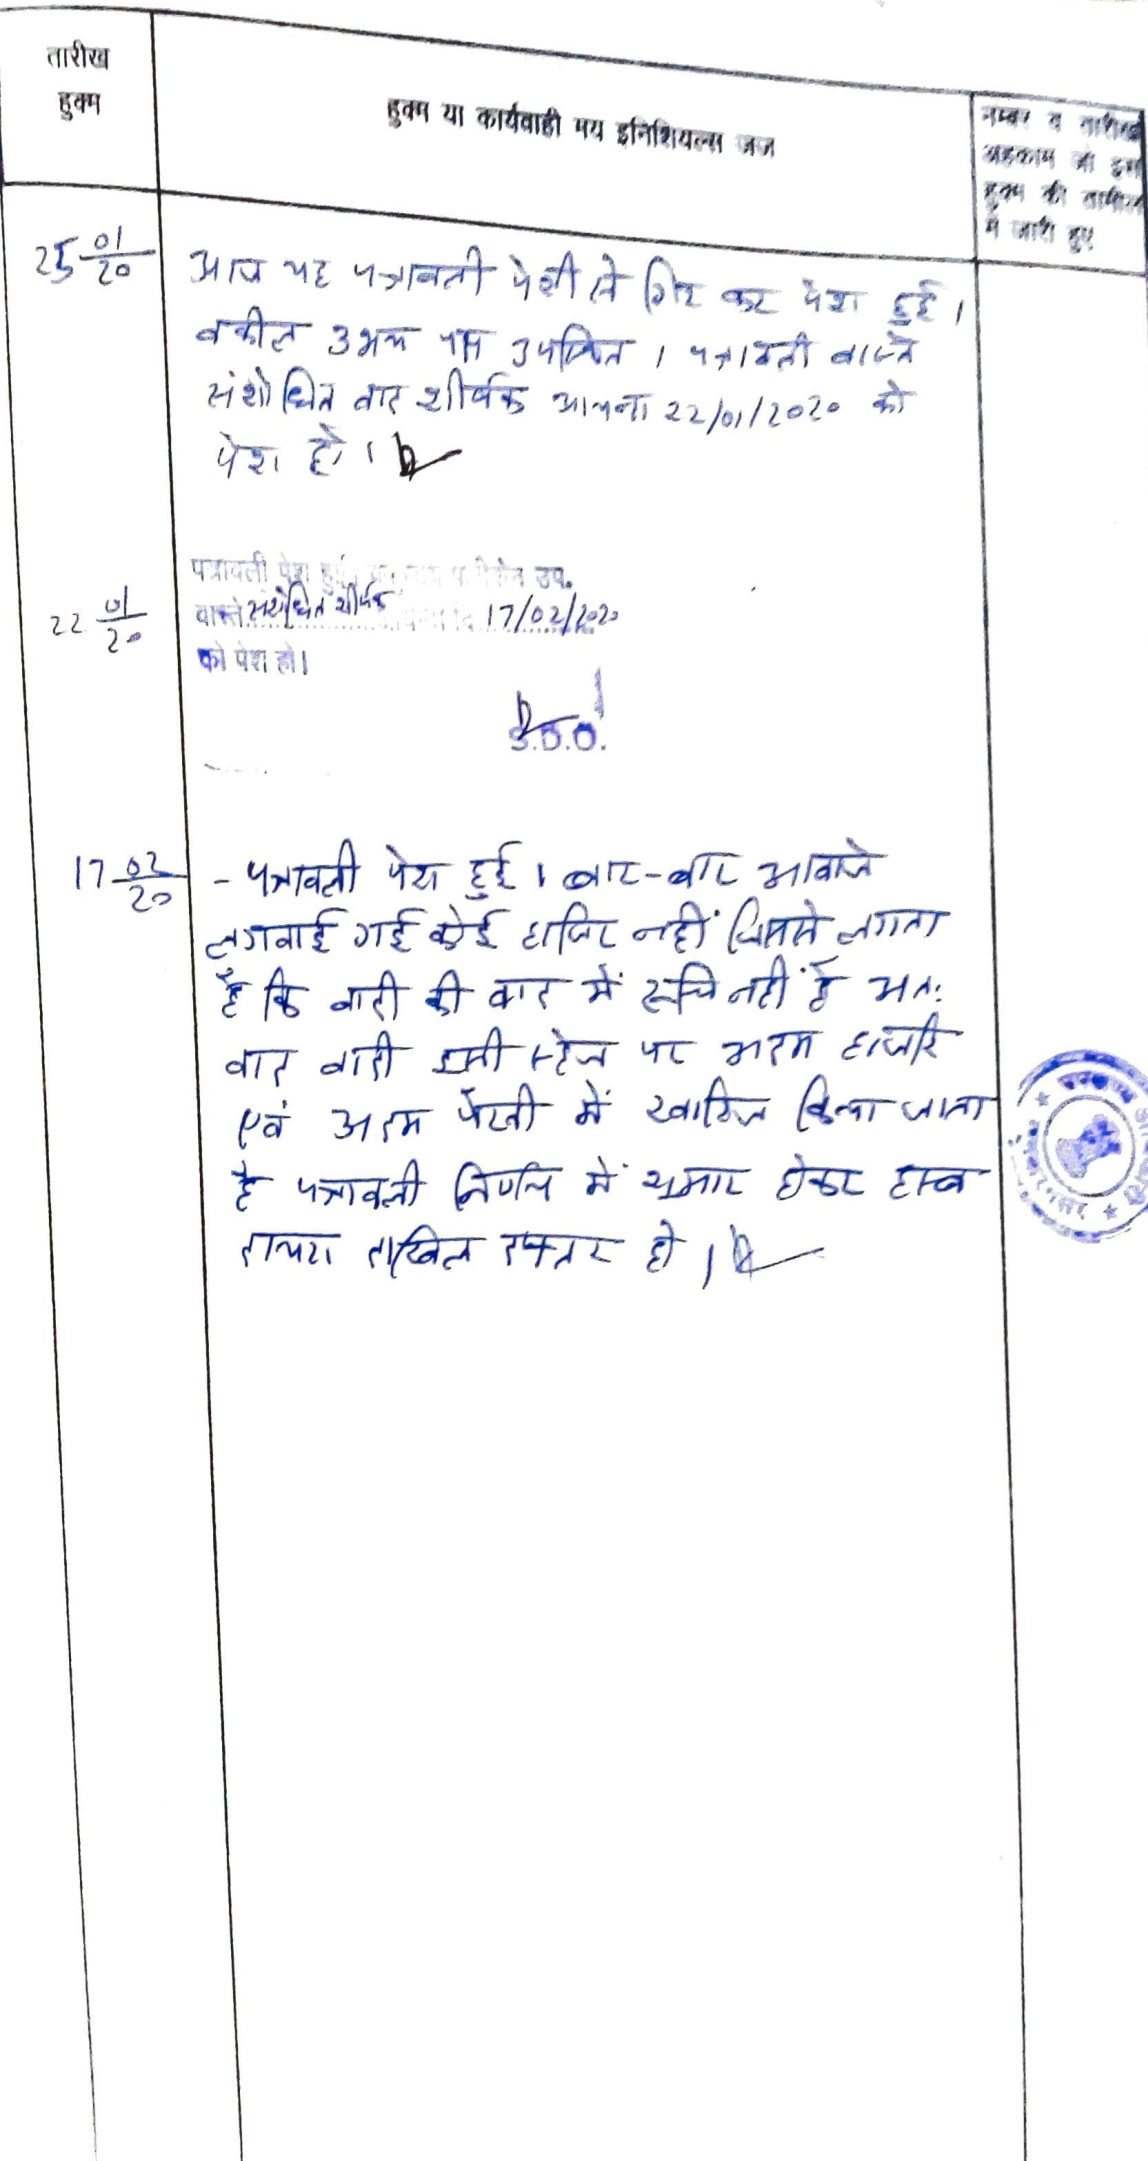 तारीख
हुक्म
हुक्म या कार्यवाही मय इनिशियल्स जज
नम्बर व तारीख
अहकाम जो इस
हुक्म की तामील
में जारी हुए
25 01/20
आज यह पत्रावली पेशी से गिर कर पेश हुई।
वकील उभय पक्ष उपस्थित। पत्रावली वास्ते
संशोधित वाद शीर्षक आयन्दा 22/01/2020 को
पेश हो।
22 01/20
पत्रावली पेश हुई उप.
वास्ते संशोधित शीर्षक 17/02/2020
को पेश हो।
S.D.O.
17 02/20
- पत्रावली पेश हुई। बार-बार आवाजे
लगवाई गई कोई हाजिर नहीं जिससे लगता
है कि वादी की वाद में रूचि नहीं है अतः
वाद वादी इसी स्टेज पर अदम हाजरि
एवं अदम पैरवी में खारिज किया जाता
है पत्रावली निर्णय में शुमार होकर
दायरा दाखिल दफ्तर हो।